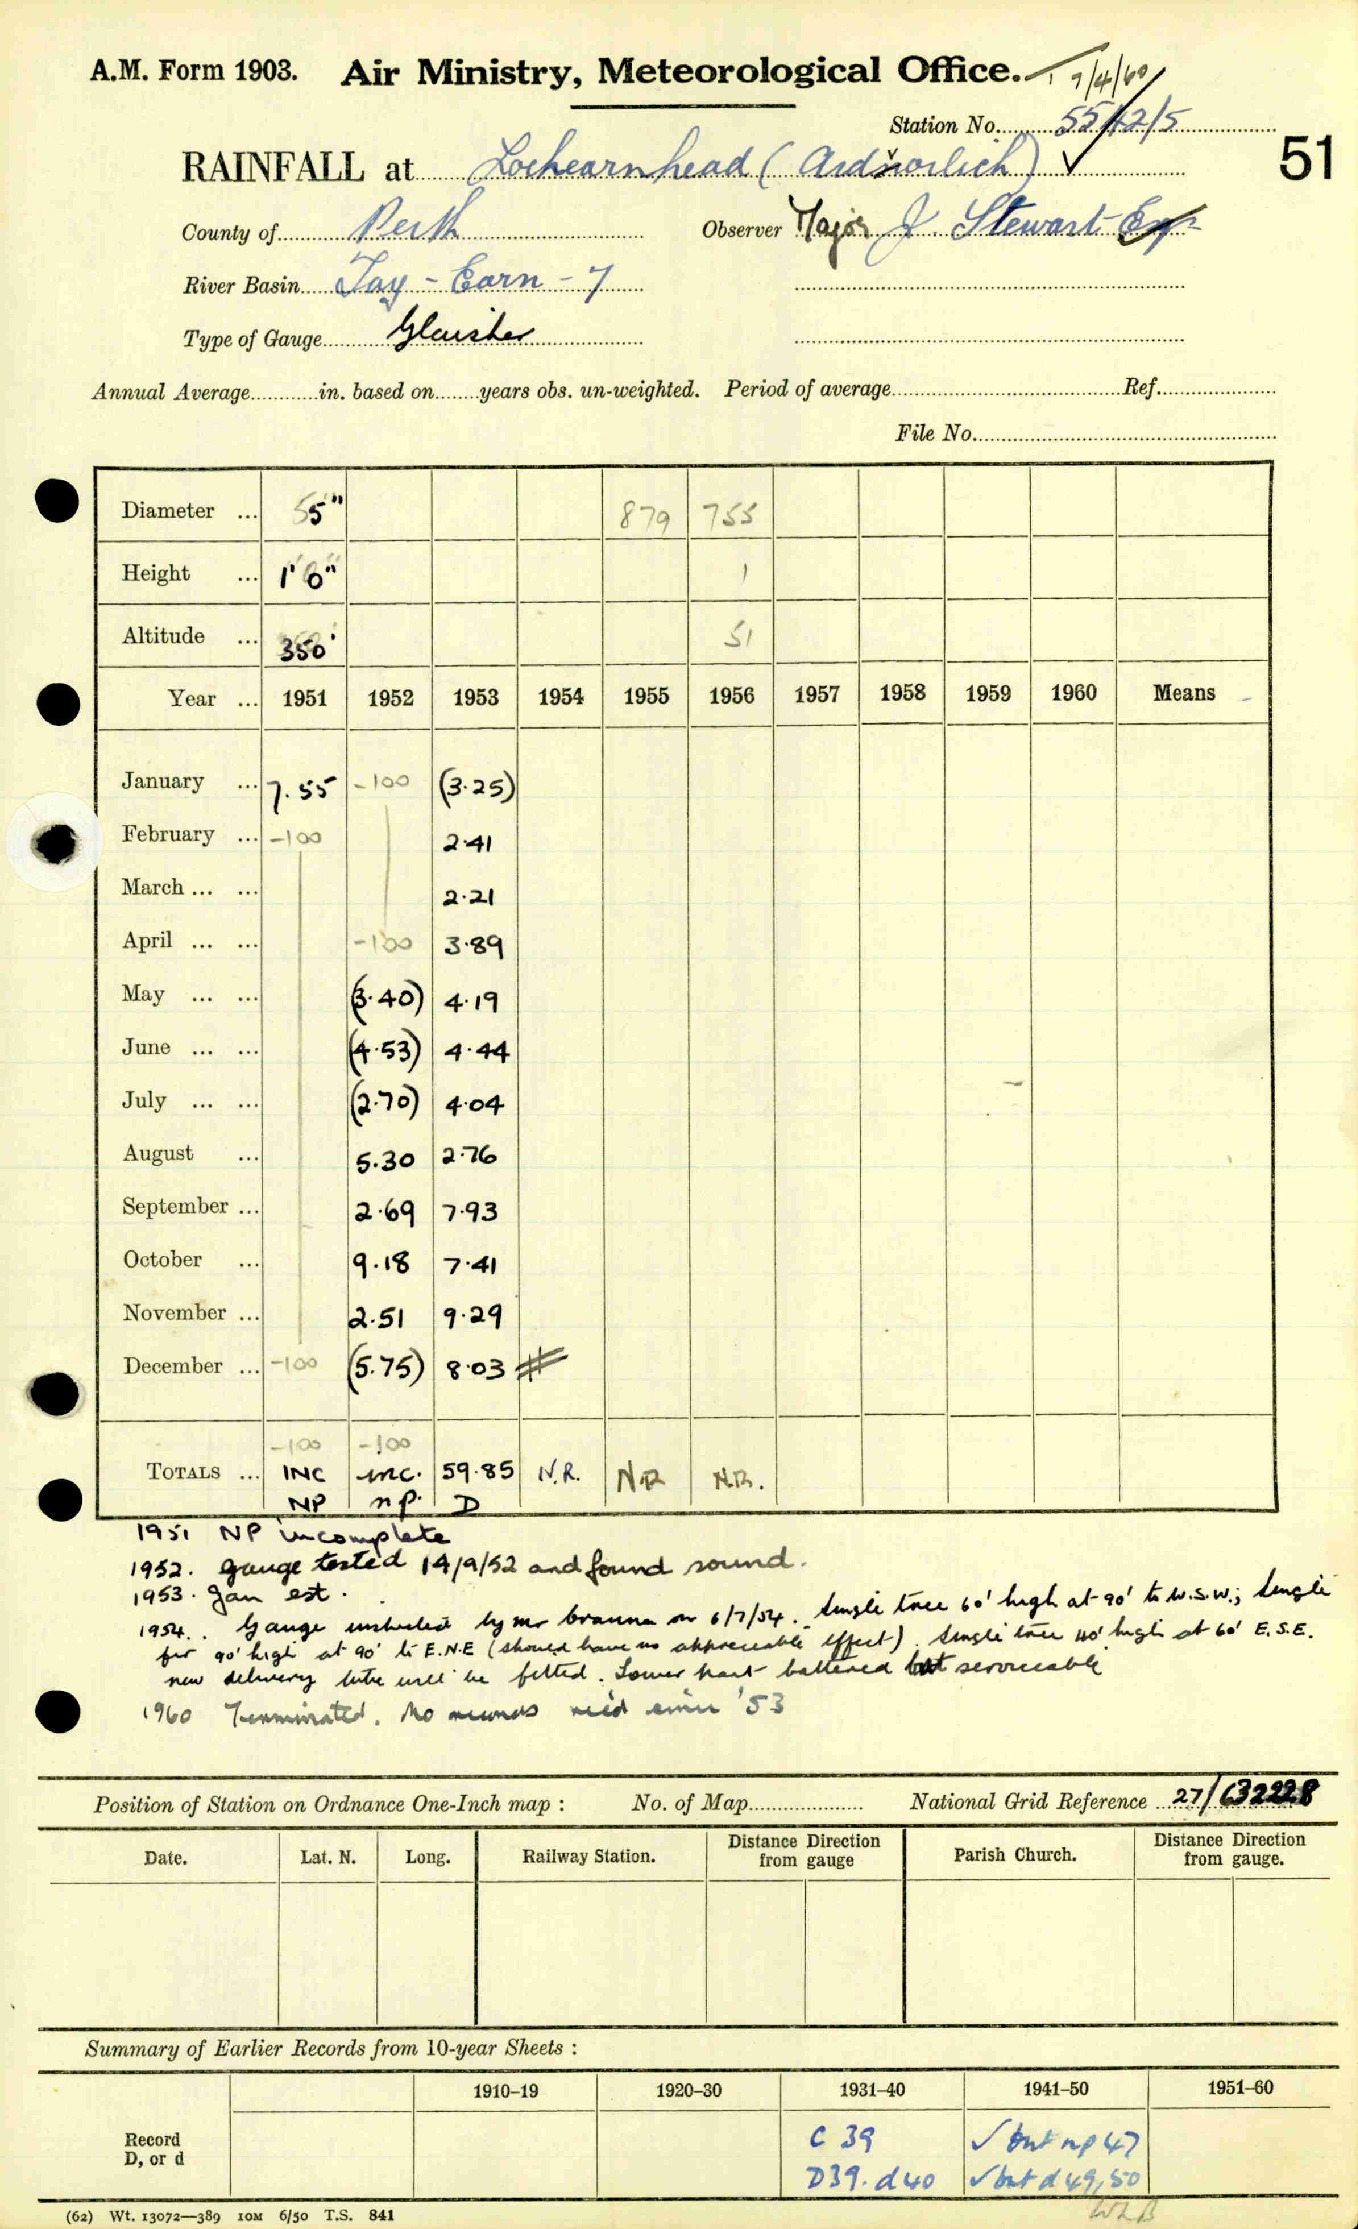 A.M. Form 1903. Air Ministry, Meteorological Office. 7/4/60
Station No. 5542/5
51
RAINFALL at Lochearnhead (Ardvorlich)
County of Perth Observer Major J. Stewart Esq
River Basin Tay - Earn - 7
Type of Gauge Glaisher
Annual Average in. based on years obs. un-weighted. Period of average Ref.
File No.
Diameter ... 5" 879 755
Height ... 1' 0" 1
Altitude ... 350' 51
Year ... 1951 1952 1953 1954 1955 1956 1957 1958 1959 1960 Means
January ... 7.55 -100 (3.25)
February ... -100 2.41
March ... ... 2.21
April ... ... -100 3.89
May ... ... (3.40) 4.19
June ... ... (4.53) 4.44
July ... ... (2.70) 4.04
August ... 5.30 2.76
September ... 2.69 7.93
October ... 9.18 7.41
November ... 2.51 9.29
December ... -100 (5.75) 8.03
-100 -100
TOTALS ... INC inc. 59.85 N.R. NR N.R.
NP np. D
1951 NP incomplete
1952. gauge tested 14/9/52 and found sound.
1953. Jan est.
1954. Gauge inspected by Mr on 6/7/54. Single tree 60' high at 90' to W.S.W.; Single
fir 90' high at 90' to E.N.E (should have no appreciable effect). Single tree 40' high at 60' E.S.E.
new delivery tube will be fitted. Lower part battered but serviceable
1960 Terminated. No records rec'd since '53
Position of Station on Ordnance One-Inch map : No. of Map National Grid Reference 27/632228
Date. Lat. N. Long. Railway Station. Distance Direction from gauge Parish Church. Distance Direction from gauge.
Summary of Earlier Records from 10-year Sheets :
1910-19 1920-30 1931-40 1941-50 1951-60
Record C 39 ✓ but np 47
D, or d D39. d40 ✓ but d 49, 50
WLB
(62) Wt. 13072—389 10M 6/50 T.S. 841